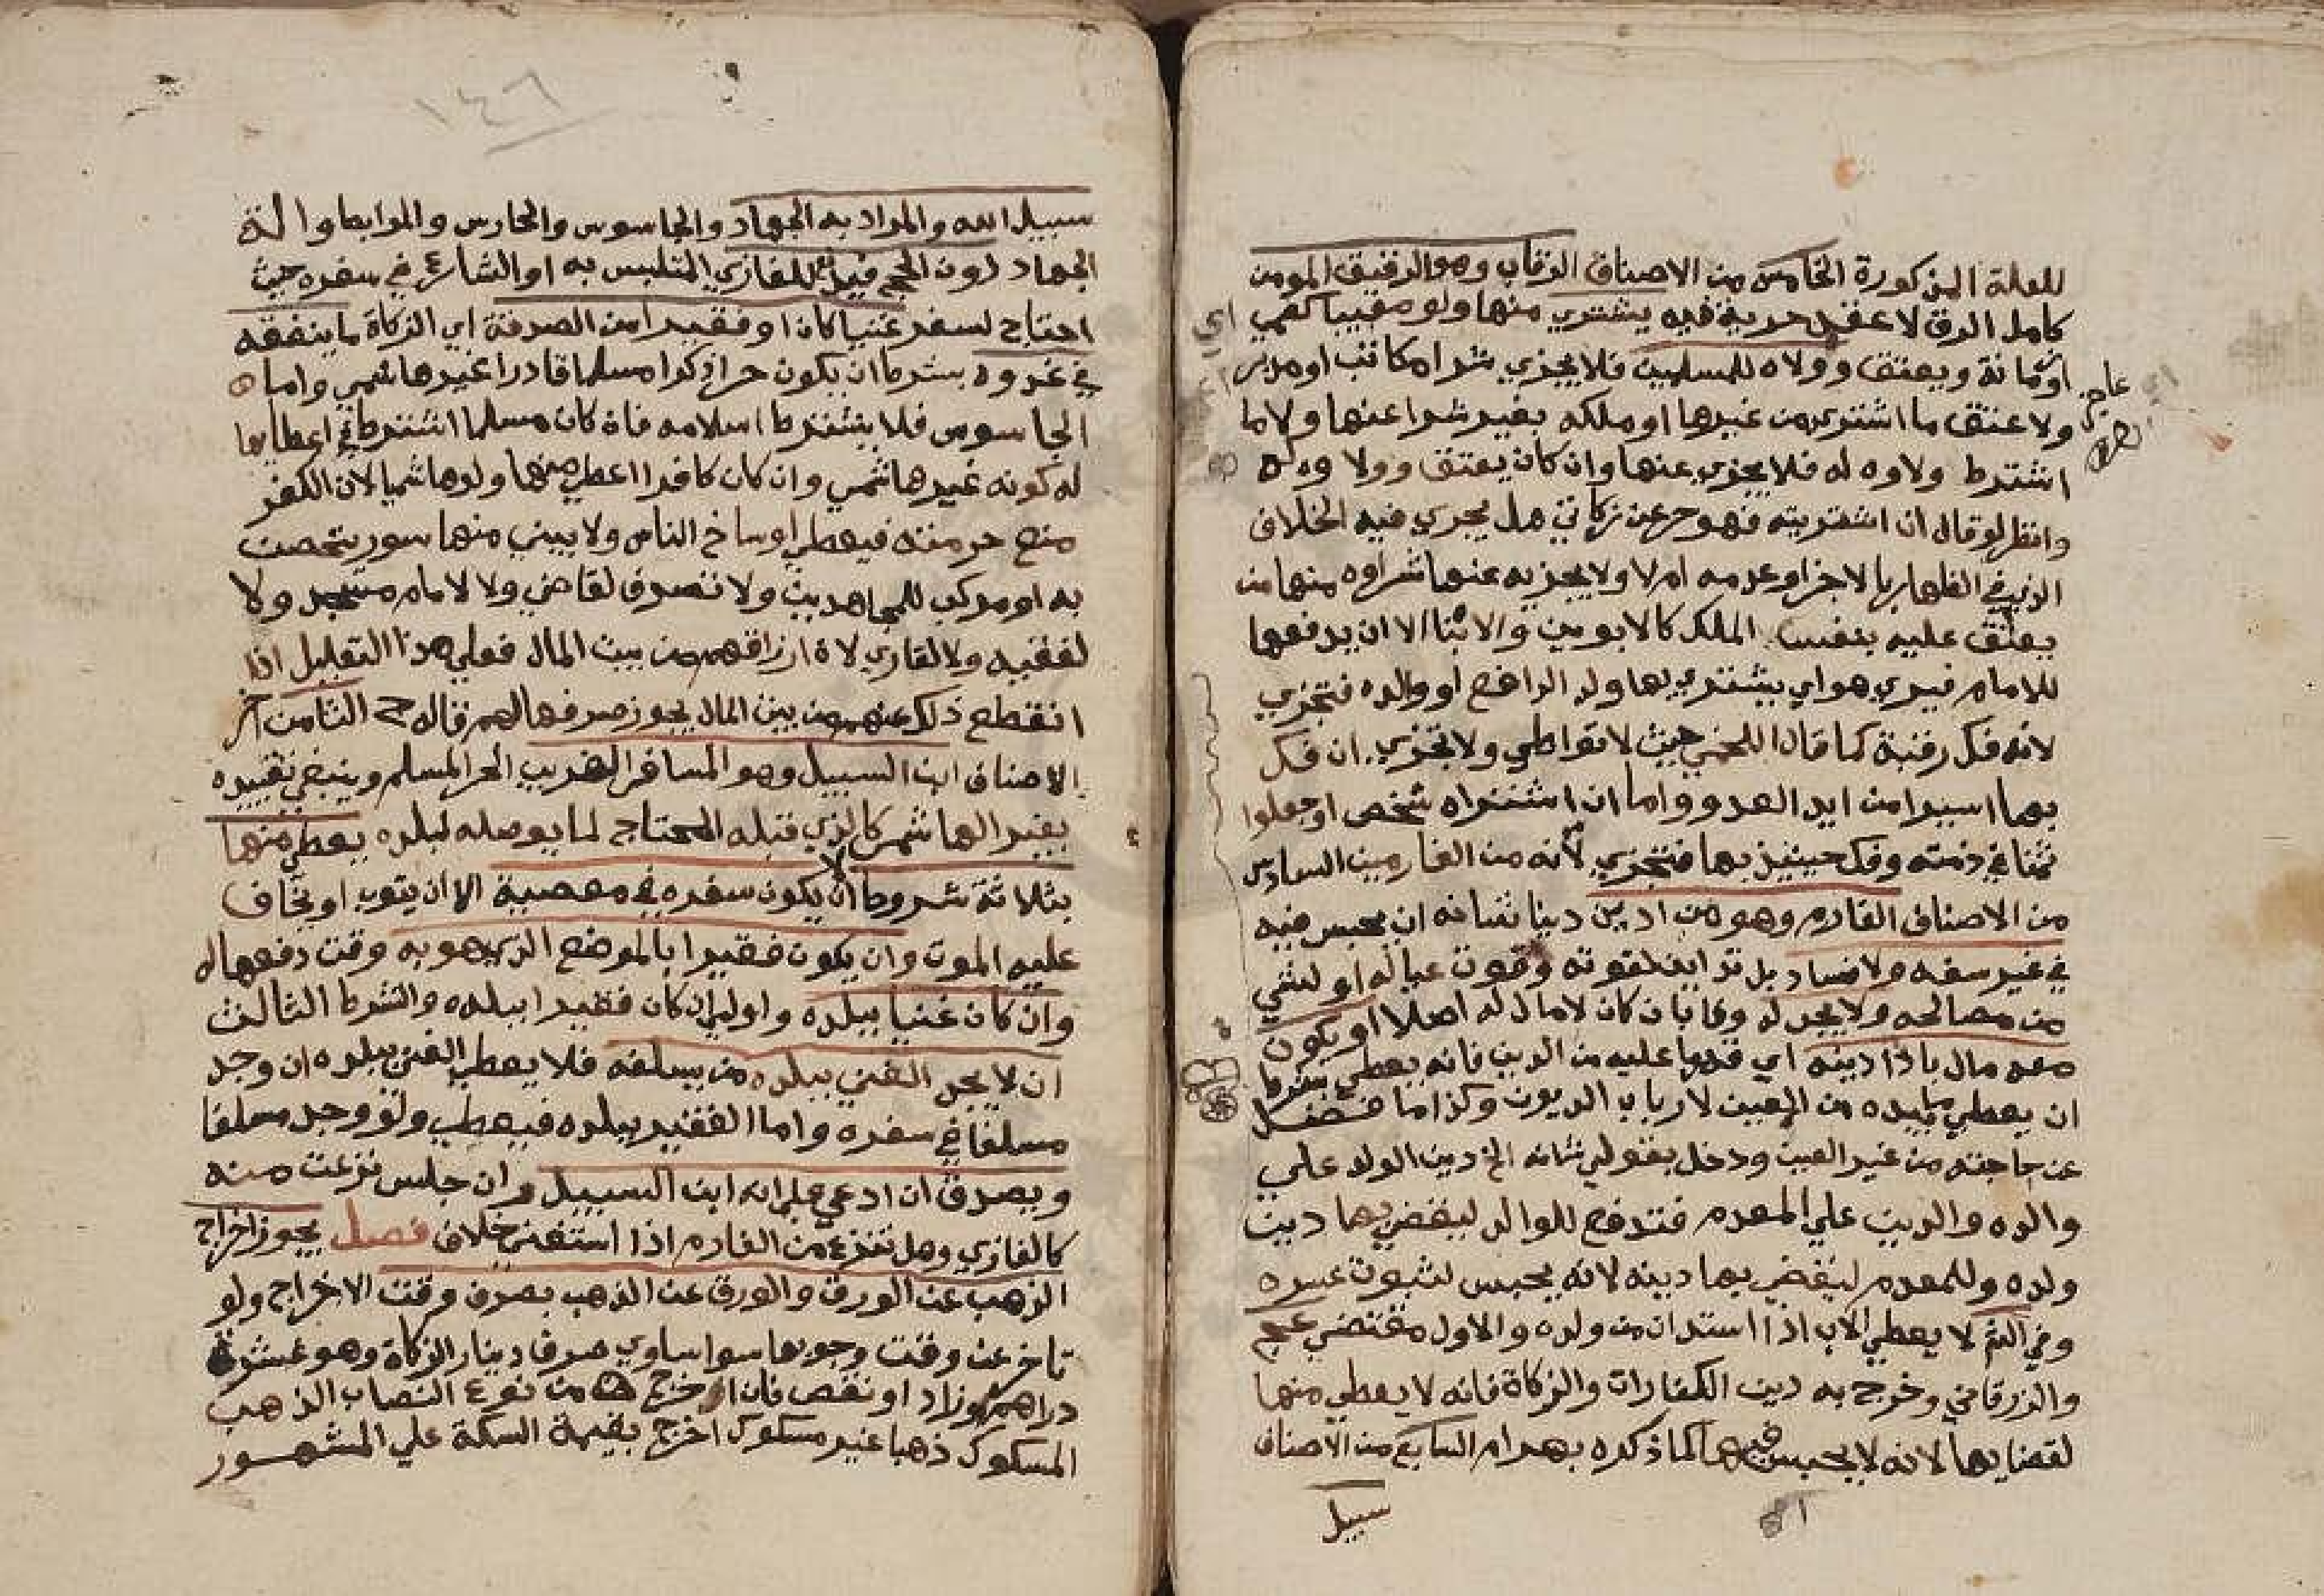 للعلة المذكورة الخامس من الاصناف الرقاب وهو الرقيق المومن
كامل الرق لا عقد حرية فيه يشتري منها ولو معيبا كعمي
او زمانة ويعتق وولاه للمسلمين فلا يجزي شرا مكاتب او مدبر
ولا عتق ما اشتري من غيرها او ملكه بغير شرا عنها ولا ما
اشترط ولاوه له فلا يجزي عنها وان كان يعتق وولاوه له
وانظر لو قال ان اشتريته فهو حر عن زكاتي هل يجري فيه الخلاف
الذي في الظهار بالاجزا وعدمه ام لا ولا يجزيه عنها شراوه منها من
يعتق عليه بنفس الملك كالابوين والابنا الا ان يدفعها
للامام فيري هو اي يشتري بها ولد الرافع او والده فتجزي
لانه فك رقبة كما قال اللخمي حيث لا تواطي ولا تجزي ان فك
بها اسيرا من ايد العدو واما ان اشتراه شخص او جعلوا
ثمنا في ذمته وفك حينيذ بها فتجزي لانه من الغارمين السادس
من الاصناف الغارم وهو من ادين دينا شانه ان يحبس فيه
في غير سفه ولا فساد بل تداين لقوته وقوت عياله او لشي
من مصالحه ولا يجد له وفا بان كان لا مال له اصلا او يكون
معه مال بازا دينه اي قدر ما عليه من الدين فانه يعطي بشرط
ان يعطي ما بيده من العين لارباب الديون وكذا ما فضل
عن حاجته من غير العين ودخل بقولي شانه الخ دين الولد علي
والده والدين علي المعدم فتدفع للوالد ليقضي بها دين
ولده وللمعدم ليقضي بها دينه لانه يحبس لثبوت عسره
وفي لا يعطي الاب اذا استدان من ولده والاول مقتضي عج
والزرقاني وخرج به دين الكفارات والزكاة فانه لا يعطي منها
لقضايها لانه لا يحبس فيهما كما ذكره بهرام السابع من الاصناف
سبيل
سبيل الله والمراد به الجهاد والجاسوس والحارس والمرابط والة
الجهاد دون الحج للغازي المتلبس به او الشارع في سفره حيث
احتاج لسفر غنيا كان او فقيرا من الصدقة اي الزكاة ما ينفقه
في غزوه بشرط ان يكون حرا ذكرا مسلما قادرا غير هاشمي واما
الجاسوس فلا يشترط اسلامه فان كان مسلما اشترط في اعطايها
له كونه غير هاشمي وان كان كافرا اعطي منها ولو هاشميا لان الكفر
منع حرمته فيعطي اوساخ الناس ولا يبني منها سور يتحصن
به او مركب للمجاهدين ولا تصرف لقاضي ولا لامام مسجد ولا
لفقيه ولا لقاري لان ارزاقهم من بيت المال فعلي هذا التعليل اذا
انقطع ذلك عنهم من بيت المال يجوز صرفها لهم قاله ح الثامن اخر
الاصناف ابن السبيل وهو المسافر الغريب الحر المسلم وينبغي تقييده
بغير الهاشمي كالذي قبله المحتاج لما يوصله لبلده يعطي منها
بثلاثة شروط ان لا يكون سفره في معصية الا ان يتوب او يخاف
عليه الموت وان يكون فقيرا بالموضع الذي هو به وقت دفعها له
وان كان غنيا ببلده واولي ان كان فقيرا ببلده والشرط الثالث
ان لا يجد الغني ببلده من يسلفه فلا يعطي الغني ببلده ان وجد
مسلفا في سفره واما الفقير ببلده فيعطي ولو وجد مسلفا
ويصدق ان ادعي انه ابن السبيل وان جلس نزعت منه
كالغازي وهل تنزع من الغارم اذا استغني خلاف فصل يجوز اخراج
الذهب عن الورق والورق عن الذهب بصرف وقت الاخراج ولو
تاخر عن وقت وجوبها سوا ساوي صرف دينار الزكاة وهو عشرة
دراهم او زاد او نقص فان اخرج من نوع النصاب الذهب
المسكوك ذهبا غير مسكوك اخرج بقيمة السكة علي المشهور
١٤٦